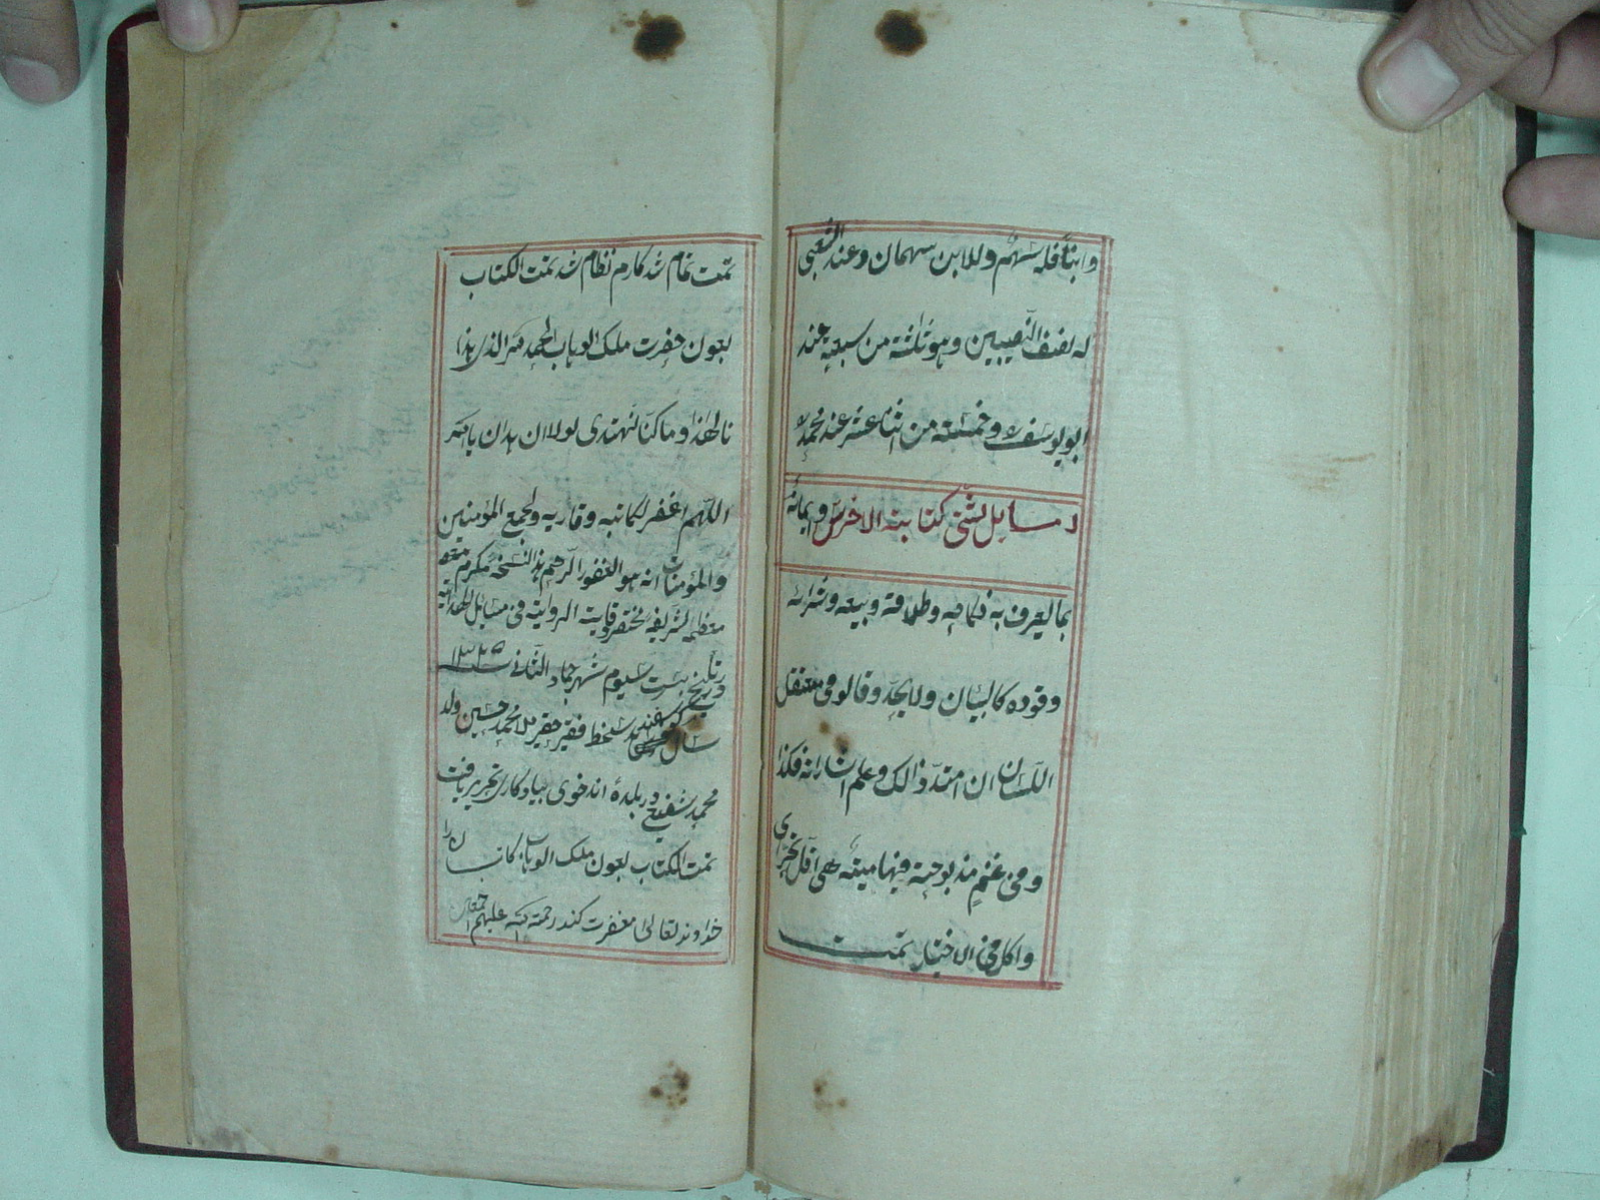 وابنا فله سهم وللابن سهمان وعند الشعبی
له نصف النصیبین وهو ثلثة من سبعة عند
ابو یوسف وخمسة من اثنا عشر عند محمد
مسایل شتی کتابته الاخرس وایمائه
بما یعرف به نکاحه وطلاقه وبیعه وشرائه
وقوده کالبیان ولا یحد وقالو فی معتقل
اللسان ان امتد ذالک وعلم اشاراته فکذا
وفی غنم مذبوحة فیها میتة هی اقل تحری
واکل فی الاختیار تمت
تمت تمام شد کارم نظام شد تمت الکتاب
بعون حضرت ملک الوهاب الحمد لله الذی هذا
نا لهذا وما کنا لنهتدی لولا ان هدان یا الله
اللهم اغفر لکاتبه وقاریه ولجمیع المؤمنین
والمؤمنات انه هو الغفور الرحیم هذا النسخه مکرم
معظمه شریفه مختصر وقایته الروایته فی مسایل الهدایته
بتاریخ بیست سیوم شهر جماد الثانی
سال بدستخط فقیر حقیر ملا محمد حسین ولد
محمد شفیع در بلدۀ اندخوی بیادکاری تحریر یافت
تمت الکتاب بعون ملک الوهاب کاتبان را
خداوند تعالی مغفرت کند رحمة الله علیهم اجمعین